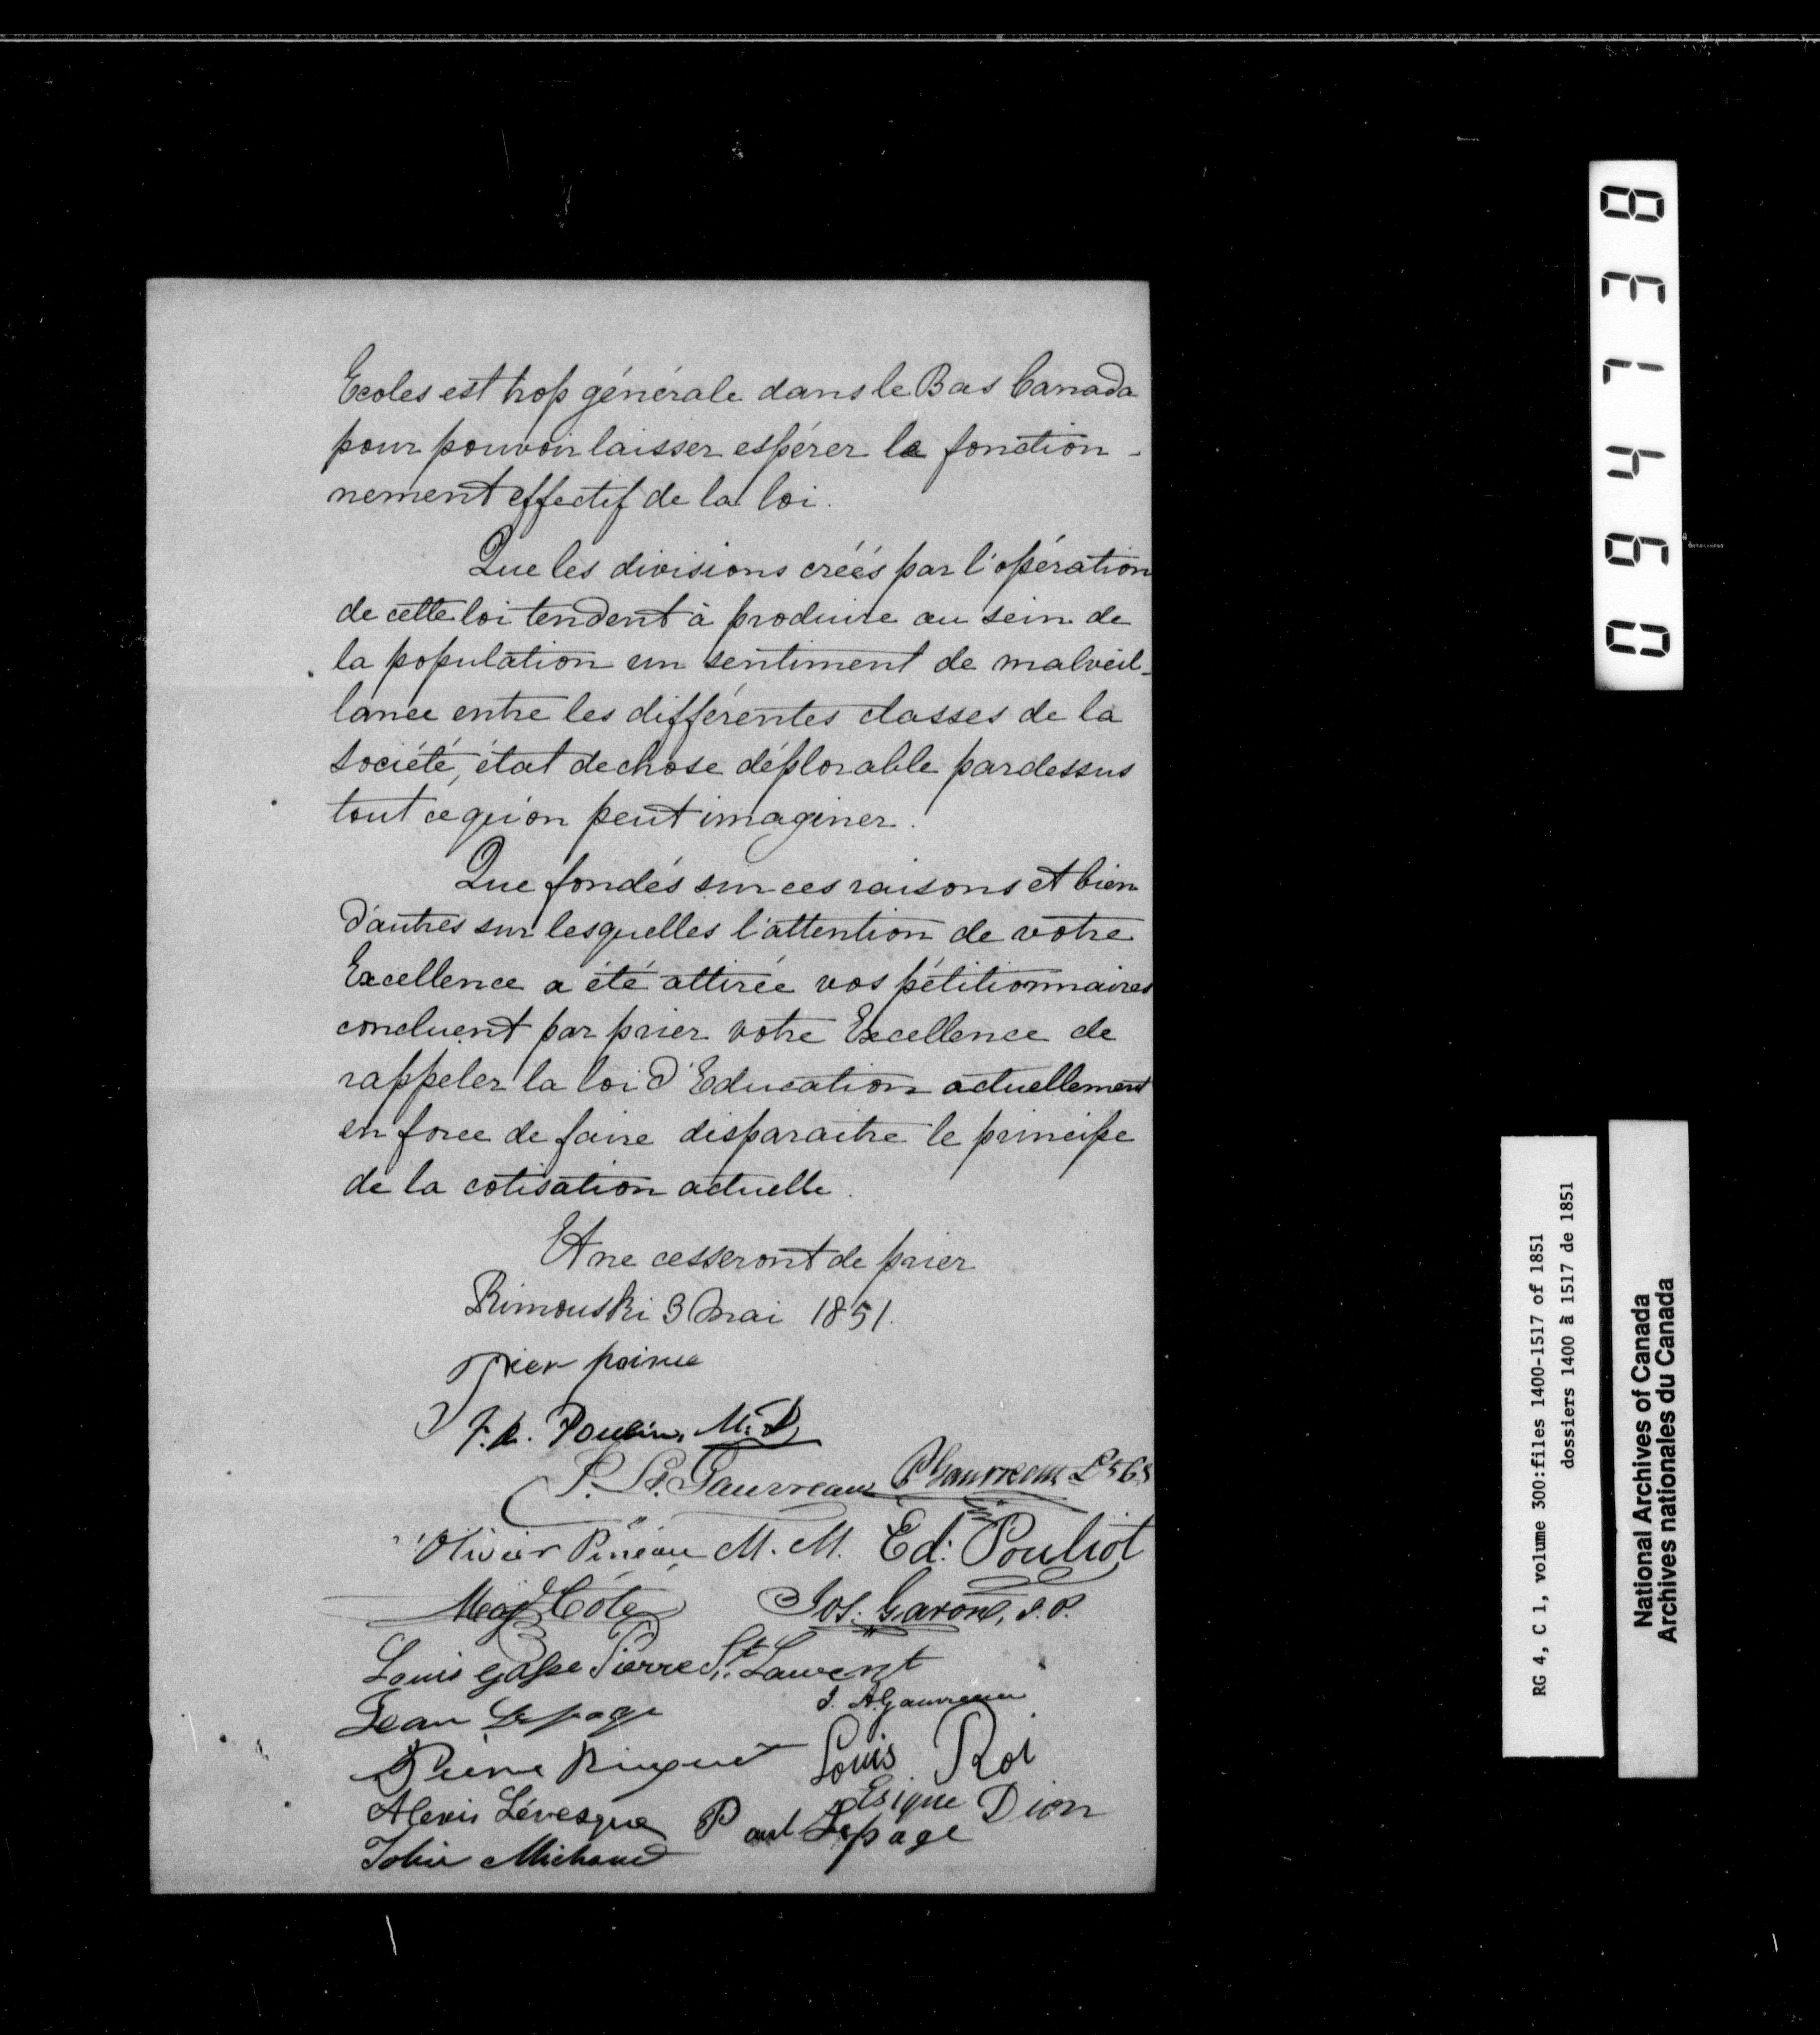 Ecoles est trop générale dans le Bas Canada
pour pouvoir laisser espérer le fonction-
nement effectif de la loi.
Que les divisions créés par l'opération
de cette loi tendent à produire au sein de
la population un sentiment de malveil-
lance entre les différentes classes de la
société, état de chose déplorable pardessus
tout ce qu'on peut imaginer.
Que fondés sur ces raisons et bien
d'autres sur lesquelles l'attention de votre
Excellence a été attirée vos pétitionnaires
concluent par prier votre Excellence de
rappeler la loi d'Education actuellement
en force de faire disparaitre le principe
de la cotisation actuelle.
Et ne cesseront de prier
Rimouski 3 Mai 1851.
Poulin, M.D
P. Gauvreau P Gauvreau
Olivier Pineau M. M. Ed: Pouliot
Côté Jos. Garon, J.P.
Louis Pierre St. Laurent
Jean Lepage J. A Gauvreau
Pierre Ringuet Louis Roi
Alexis Lévesque Paul Lepage Dion
Michaud
094738
RG 4, C 1, volume 300:files 1400-1517 of 1851
dossiers 1400 à 1517 de 1851
National Archives of Canada
Archives nationales du Canada